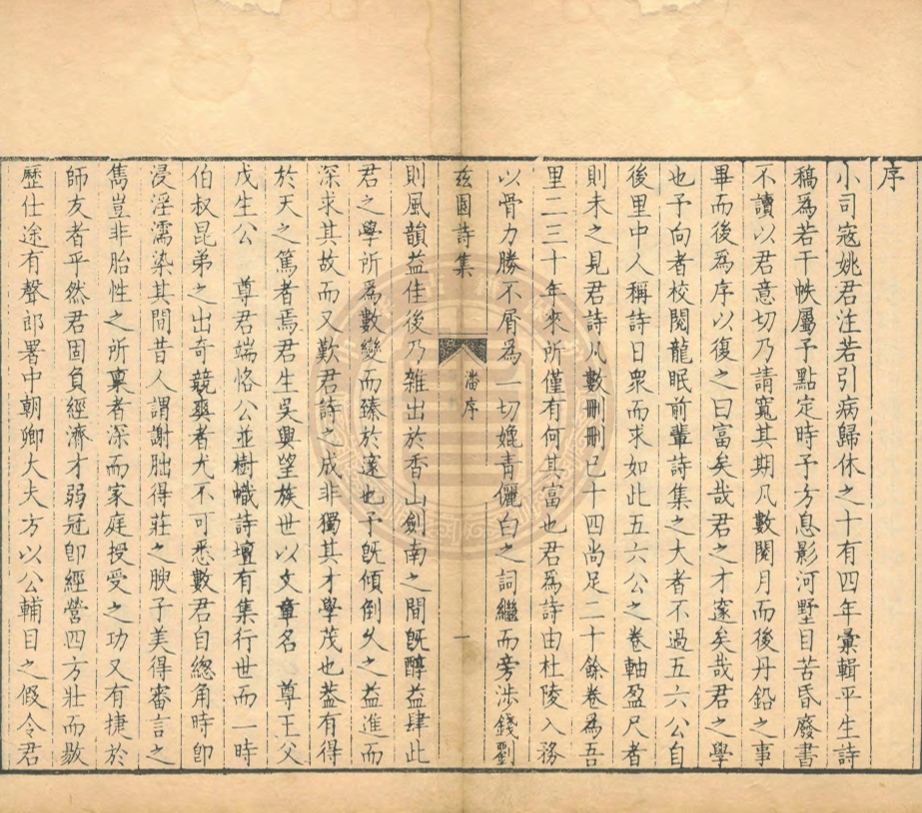 序
小司寇姚君注若引病歸休之十有四年彙輯平生詩
稿為若干帙屬予點定時予方息影河墅目苦昏廢書
不讀以君意切乃請寬其期凡數閱月而後丹鉛之事
畢而後為序以復之曰富矣哉君之才邃矣哉君之學
也予向者校閱龍眠前輩詩集之大者不過五六公自
後里中人稱詩日衆而求如此五六公之卷軸盈尺者
則未之見君詩凡數刪刪已十四尚足二十餘卷為吾
里二三十年來所僅有何其富也君為詩由杜陵入務
以骨力勝不屑為一切媲青儷白之詞繼而旁涉錢劉
茲園詩集
潘序
一
則風韻益佳後乃雜出於香山劍南之間旣醇益肆此
君之學所為數變而臻於邃也予旣傾倒久之益進而
深求其故而又歎君詩之成非獨其才學茂也葢有得
於天之篤者焉君生吳興望族世以文章名 尊王父
戊生公 尊君端恪公並樹幟詩壇有集行世而一時
伯叔昆弟之出奇競爽者尤不可悉數君自總角時卽
浸淫濡染其間昔人謂謝朏得莊之腴子美得審言之
雋豈非胎性之所稟者深而家庭授受之功又有捷於
師友者乎然君固負經濟才弱冠卽經營四方壯而敭
歷仕途有聲郎署中朝卿大夫方以公輔目之假令君